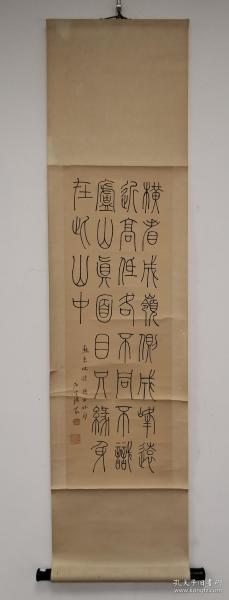 橫看成嶺側成峰遠
近高低各不同不識
廬山真面目只緣身
在此山中
孔夫子旧书网